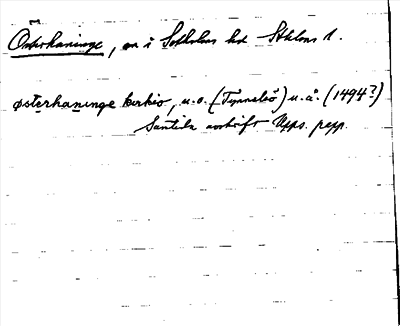 Österhaninge, sn i Sotholms hd Sthlms l.
østerhaninge kirkio, u.o. (Tyresö) u.å. (1494?)
Samtida avskrift Upps. papp.